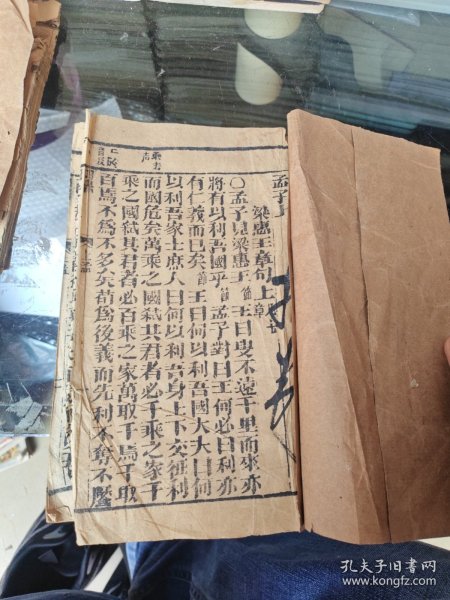 孟子
梁惠王章句上
〇孟子見梁惠王 節 王曰叟不遠千里而來亦
將有以利吾國乎 節 孟子對曰王何必曰利亦
有仁義而已矣 節 王曰何以利吾國大夫曰何
以利吾家士庶人曰何以利吾身上下交征利
而國危矣萬乘之國弑其君者必千乘之家千
乘之國弑其君者必百乘之家萬取千焉千取
百焉不爲不多矣苟爲後義而先利不奪不饜
孔夫子旧书网
www.kongfz.com